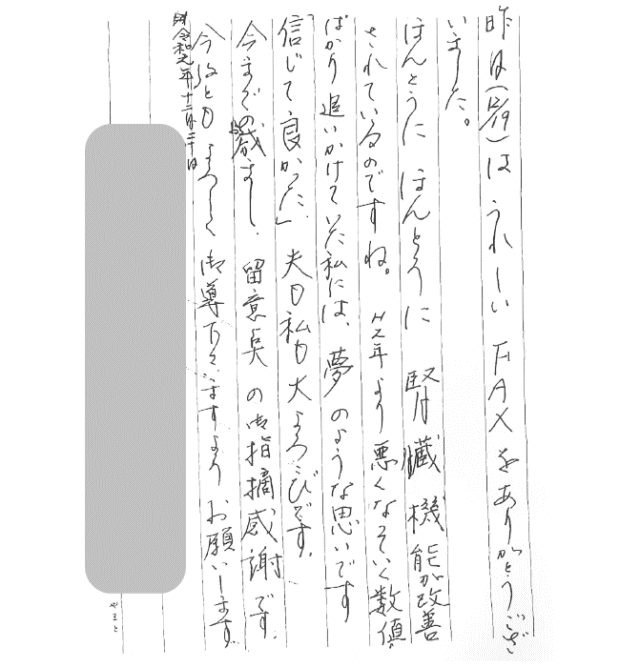 昨日(12/19)は うれしい FAXをありがとうござ
いました。
ほんとうに ほんとうに 腎臓機能が改善
されているのですね。H2年より悪くなっていく数値
ばかり追いかけていた私には、夢のような思いです
信じて良かった」夫も私も大よろこびです。
今までの励まし、留意点の御指摘感謝です。
今後ともよろしく御導下さいますよう お願いします
令和元年十二月二十日
やまと